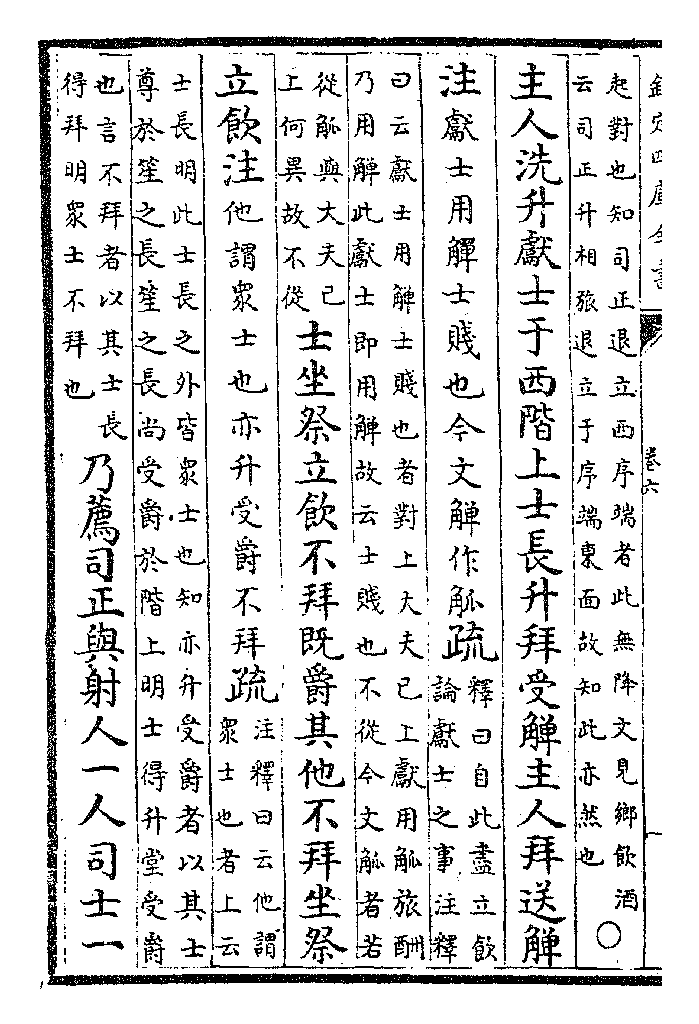 欽定四庫全書
卷六
起對也知司正退立西序端者此無降文見鄉飲酒
云司正升相旅退立于序端東面故知此亦然也○
主人洗升獻士于西階上士長升拜受觶主人拜送觶
注獻士用觶士賤也今文觶作觚疏釋曰自此盡立飲
論獻士之事注釋
曰云獻士用觶士賤也者對上大夫已上獻用觚旅酬
乃用觶此獻士即用觶故云士賤也不從今文觚者若
從觚與大夫已
上何異故不從
士坐祭立飲不拜既爵其他不拜坐祭
立飲注他謂眾士也亦升受爵不拜疏注釋曰云他謂
眾士也者上云
士長明此士長之外皆眾士也知亦升受爵者以其士
尊於笙之長笙之長尚受爵於階上明士得升堂受爵
也言不拜者以其士長
得拜明眾士不拜也
乃薦司正與射人一人司士一